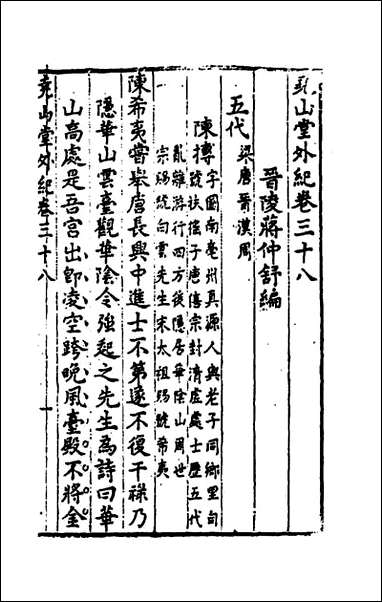 堯山堂外紀卷三十八
晉陵蔣仲舒編
五代 梁唐晉漢周
陳摶 字圖南亳州真源人與老子同鄉里自
號扶搖子唐僖宗封清虛處士歷五代
亂離游行四方後隱居華陰山周世
宗賜號白雲先生宋太祖賜號希夷
陳希夷嘗舉唐長興中進士不第遂不復干祿乃
隱華山雲臺觀華陰令強起之先生為詩曰華
山高處是吾宮出即凌空跨曉風臺殿不將金
堯山堂外紀卷三十八 一